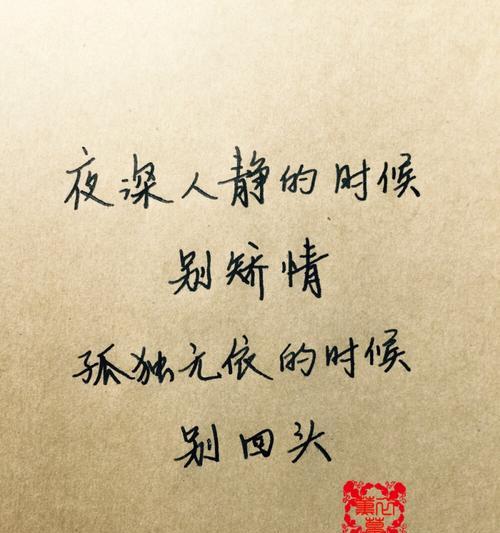 夜深人静的时候
别矫情
孤独无依的时候
别回头